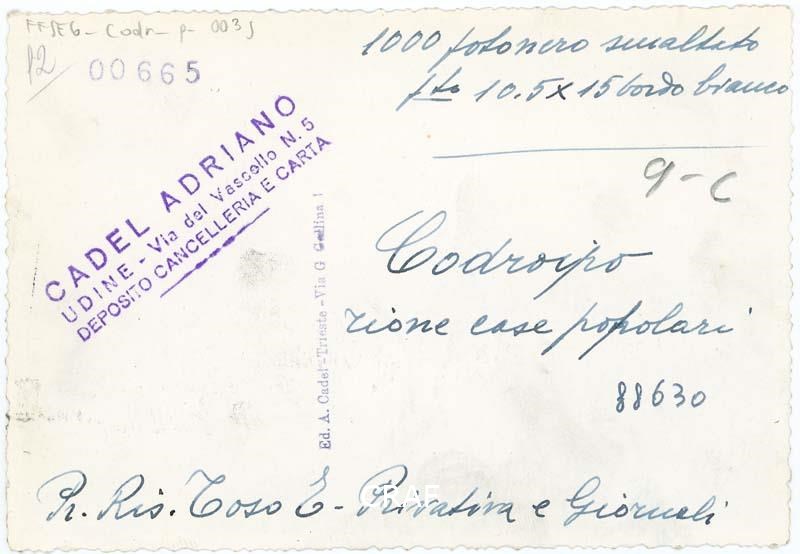 FFSEG - Codr - p - 0035
12/
00665
1000 fotonero smaltato
fto 10.5x15 bordo bianco
9-C
CADEL ADRIANO
UDINE - Via del Vascello N. 5
DEPOSITO CANCELLERIA E CARTA
Ed. A. Cadel - Trieste - Via G
Codroipo
rione case popolari
88630
Pr. Ris. Toso E - Privativa e Giornali
CRAF